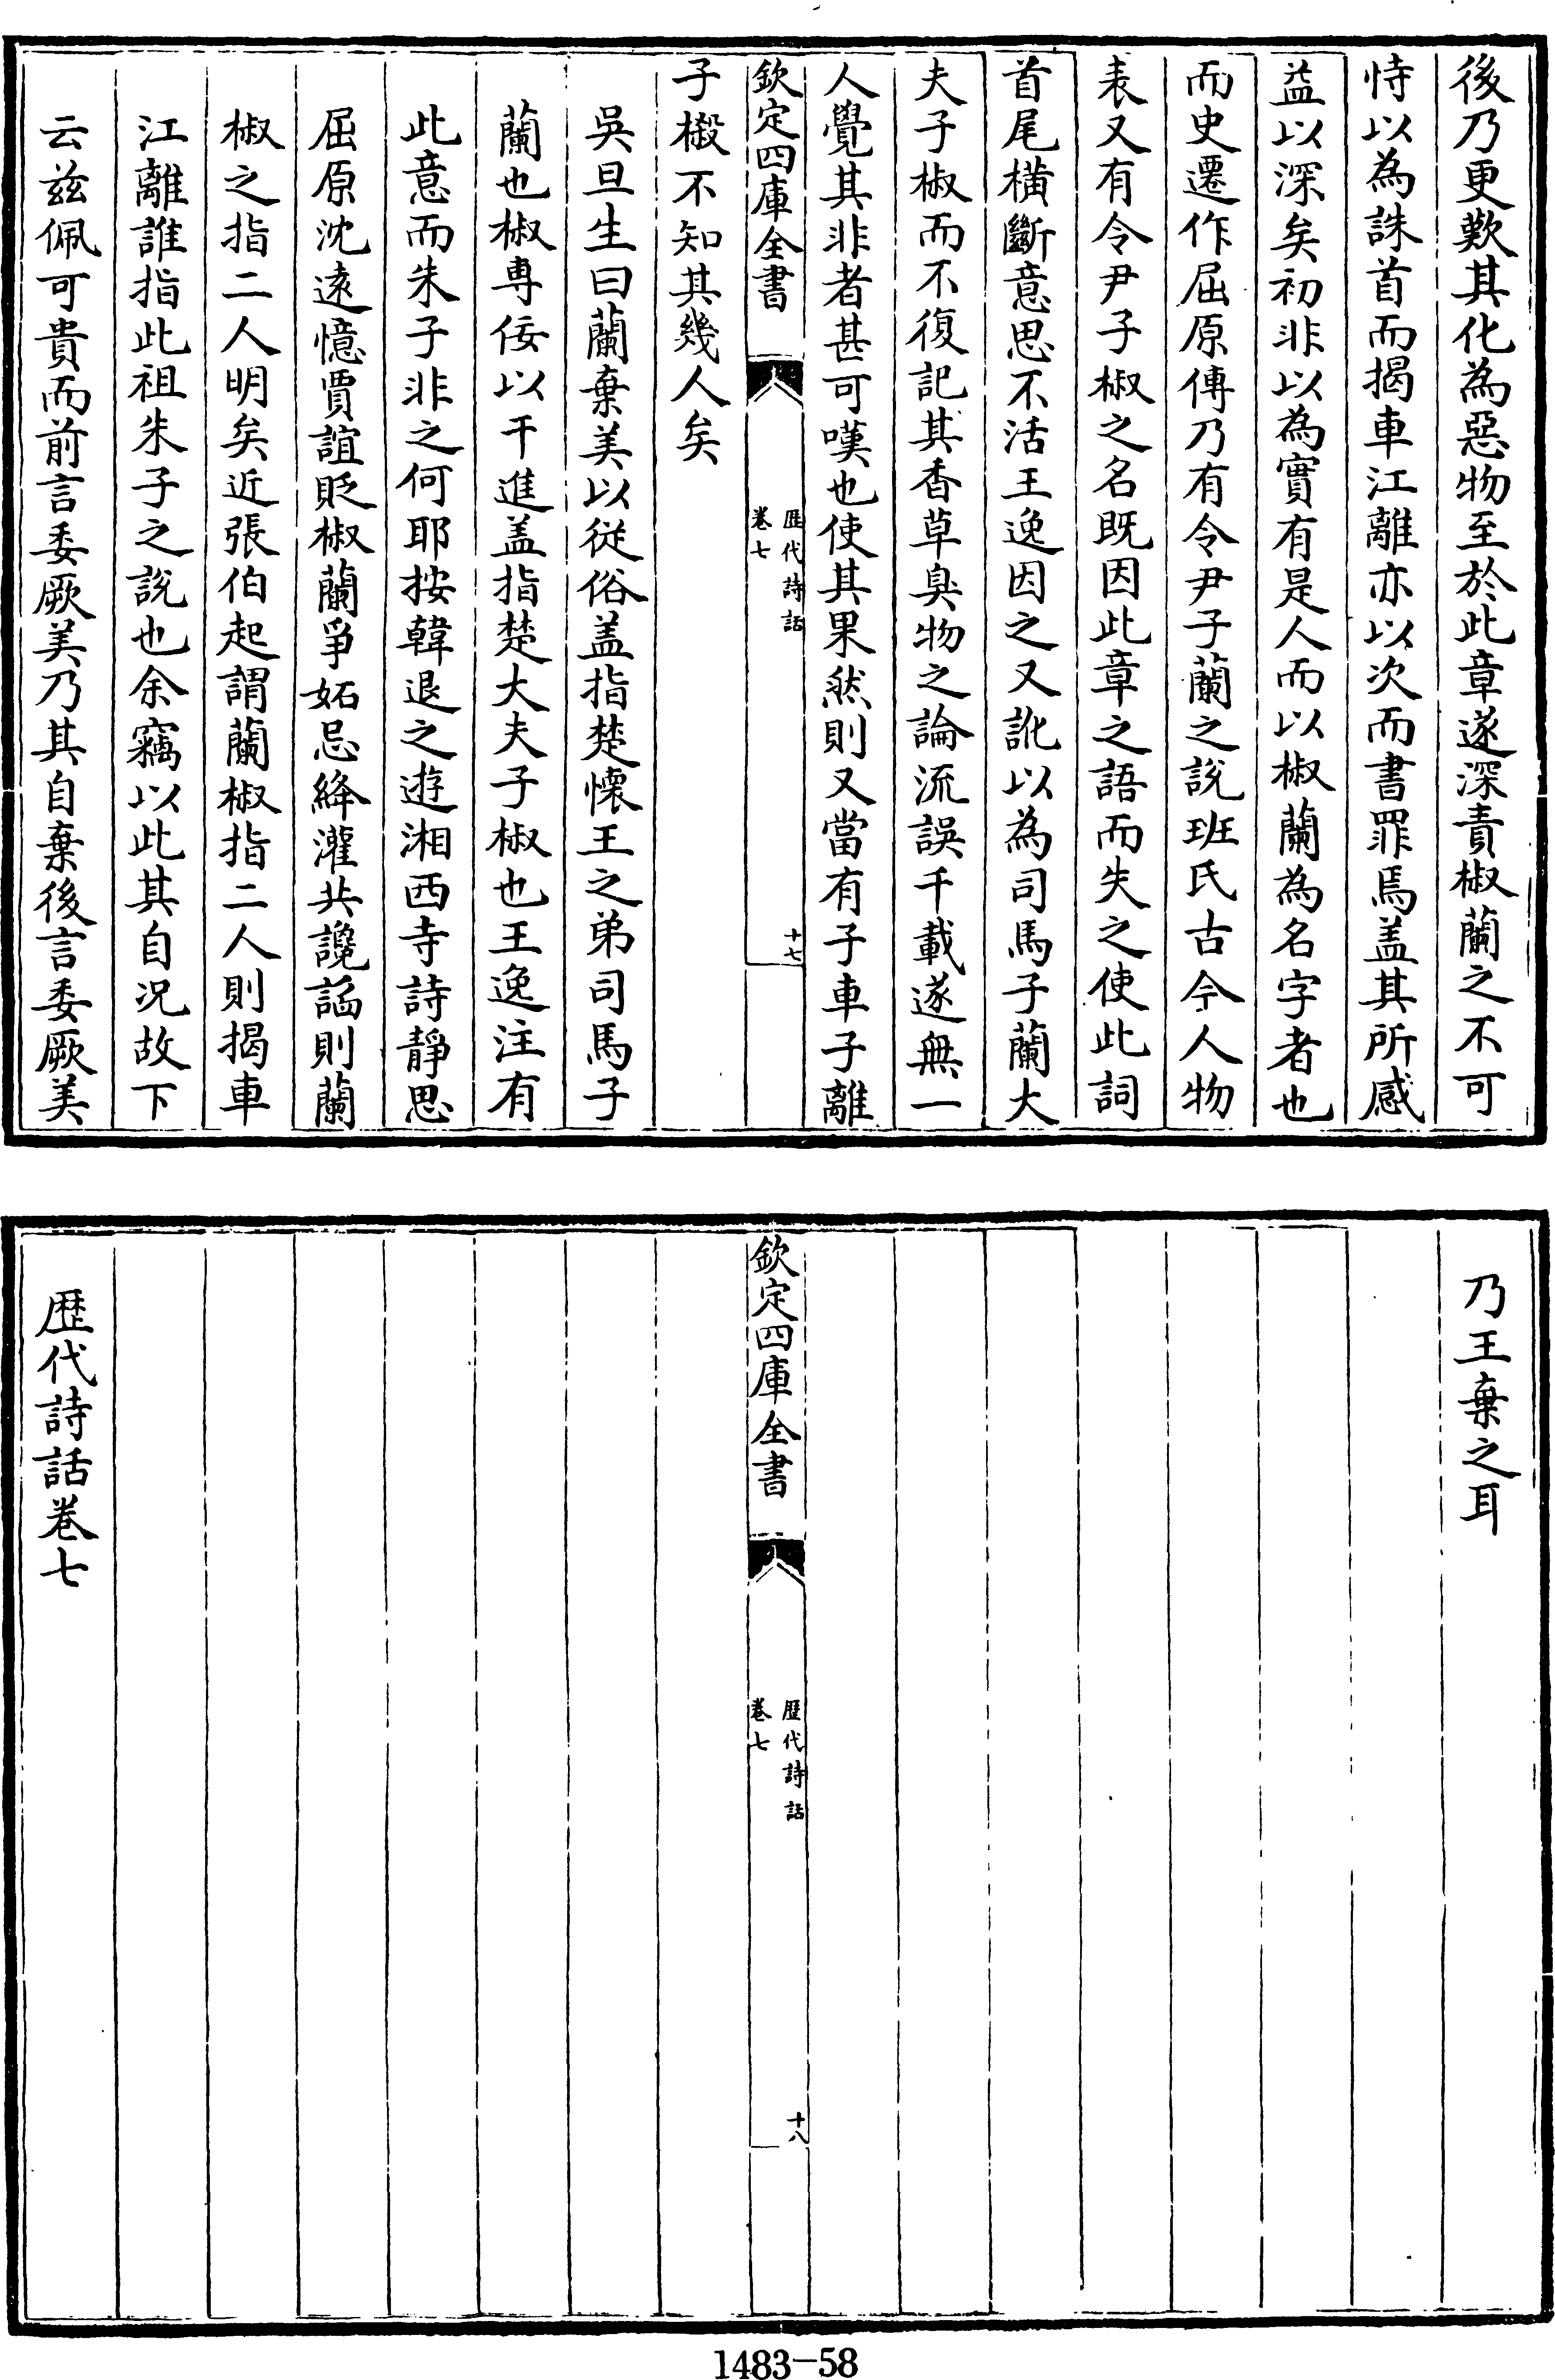 後乃更歎其化為惡物至於此章遂深責椒蘭之不可
恃以為誅首而揭車江離亦以次而書罪焉盖其所感
益以深矣初非以為實有是人而以椒蘭為名字者也
而史遷作屈原傳乃有令尹子蘭之說班氏古今人物
表又有令尹子椒之名既因此章之語而失之使此詞
首尾橫斷意思不活王逸因之又訛以為司馬子蘭大
夫子椒而不復記其香草臭物之論流誤千載遂無一
人覺其非者甚可嘆也使其果然則又當有子車子離
欽定四庫全書
歷代詩話
卷七
十七
子樧不知其幾人矣
吳旦生曰蘭棄美以從俗盖指楚懷王之弟司馬子
蘭也椒専佞以干進盖指楚大夫子椒也王逸注有
此意而朱子非之何耶按韓退之遊湘西寺詩靜思
屈原沈遠憶賈誼貶椒蘭爭妬忌絳灌共讒謟則蘭
椒之指二人明矣近張伯起謂蘭椒指二人則揭車
江離誰指此祖朱子之說也余竊以此其自况故下
云兹佩可貴而前言委厥美乃其自棄後言委厥美
乃王棄之耳
欽定四庫全書
歷代詩話
卷七
十八
歷代詩話卷七
1483-58